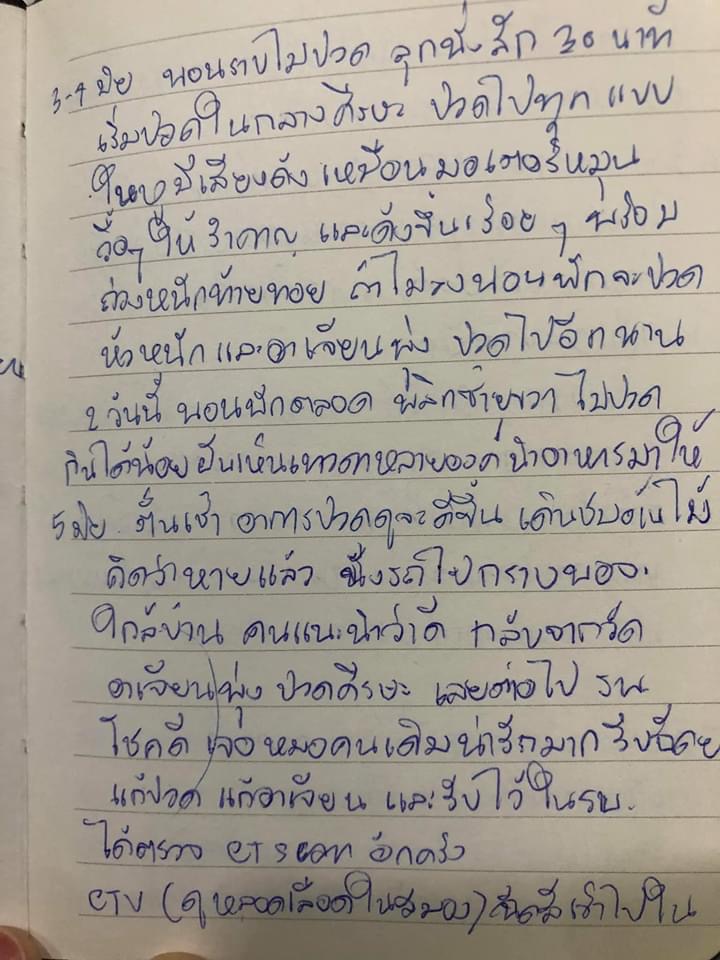 3-4 มิย นอนราบไม่ปวด ลุกนั่งสัก 30 นาที
เริ่มปวดในกลางศีรษะ ปวดไปทุกแบบ
ในหูมีเสียงดังเหมือนมอเตอร์หมุน
วื้อๆ ให้รำคาญ และดังขึ้นเรื่อยๆ พร้อม
ถ่วงหนักท้ายทอย ถ้าไม่ลงนอนพักจะปวด
หัวหนักและอาเจียนพุ่ง ปวดไปอีกนาน
2 วันนี้ นอนพักตลอด พลิกซ้ายขวา ไม่ปวด
กินได้น้อย ฝันเห็นเทวดาหลายองค์นำอาหารมาให้
5 มิย ตื่นเช้า อาการปวดดูจะดีขึ้น เดินชมต้นไม้
คิดว่าหายแล้ว นั่งรถไปกราบพระ
ใกล้บ้าน คนแนะนำว่าดี กลับจากวัด
อาเจียนพุ่ง ปวดศีรษะ เลยต่อไป รพ
โชคดี เจอหมอคนเดิมน่ารักมาก รีบฉีดยา
แก้ปวด แก้อาเจียน และรับไว้ในรพ.
ได้ตรวจ CT scan อีกครั้ง
CTV (ดูหลอดเลือดในสมอง) ฉีดสีเข้าไปใน